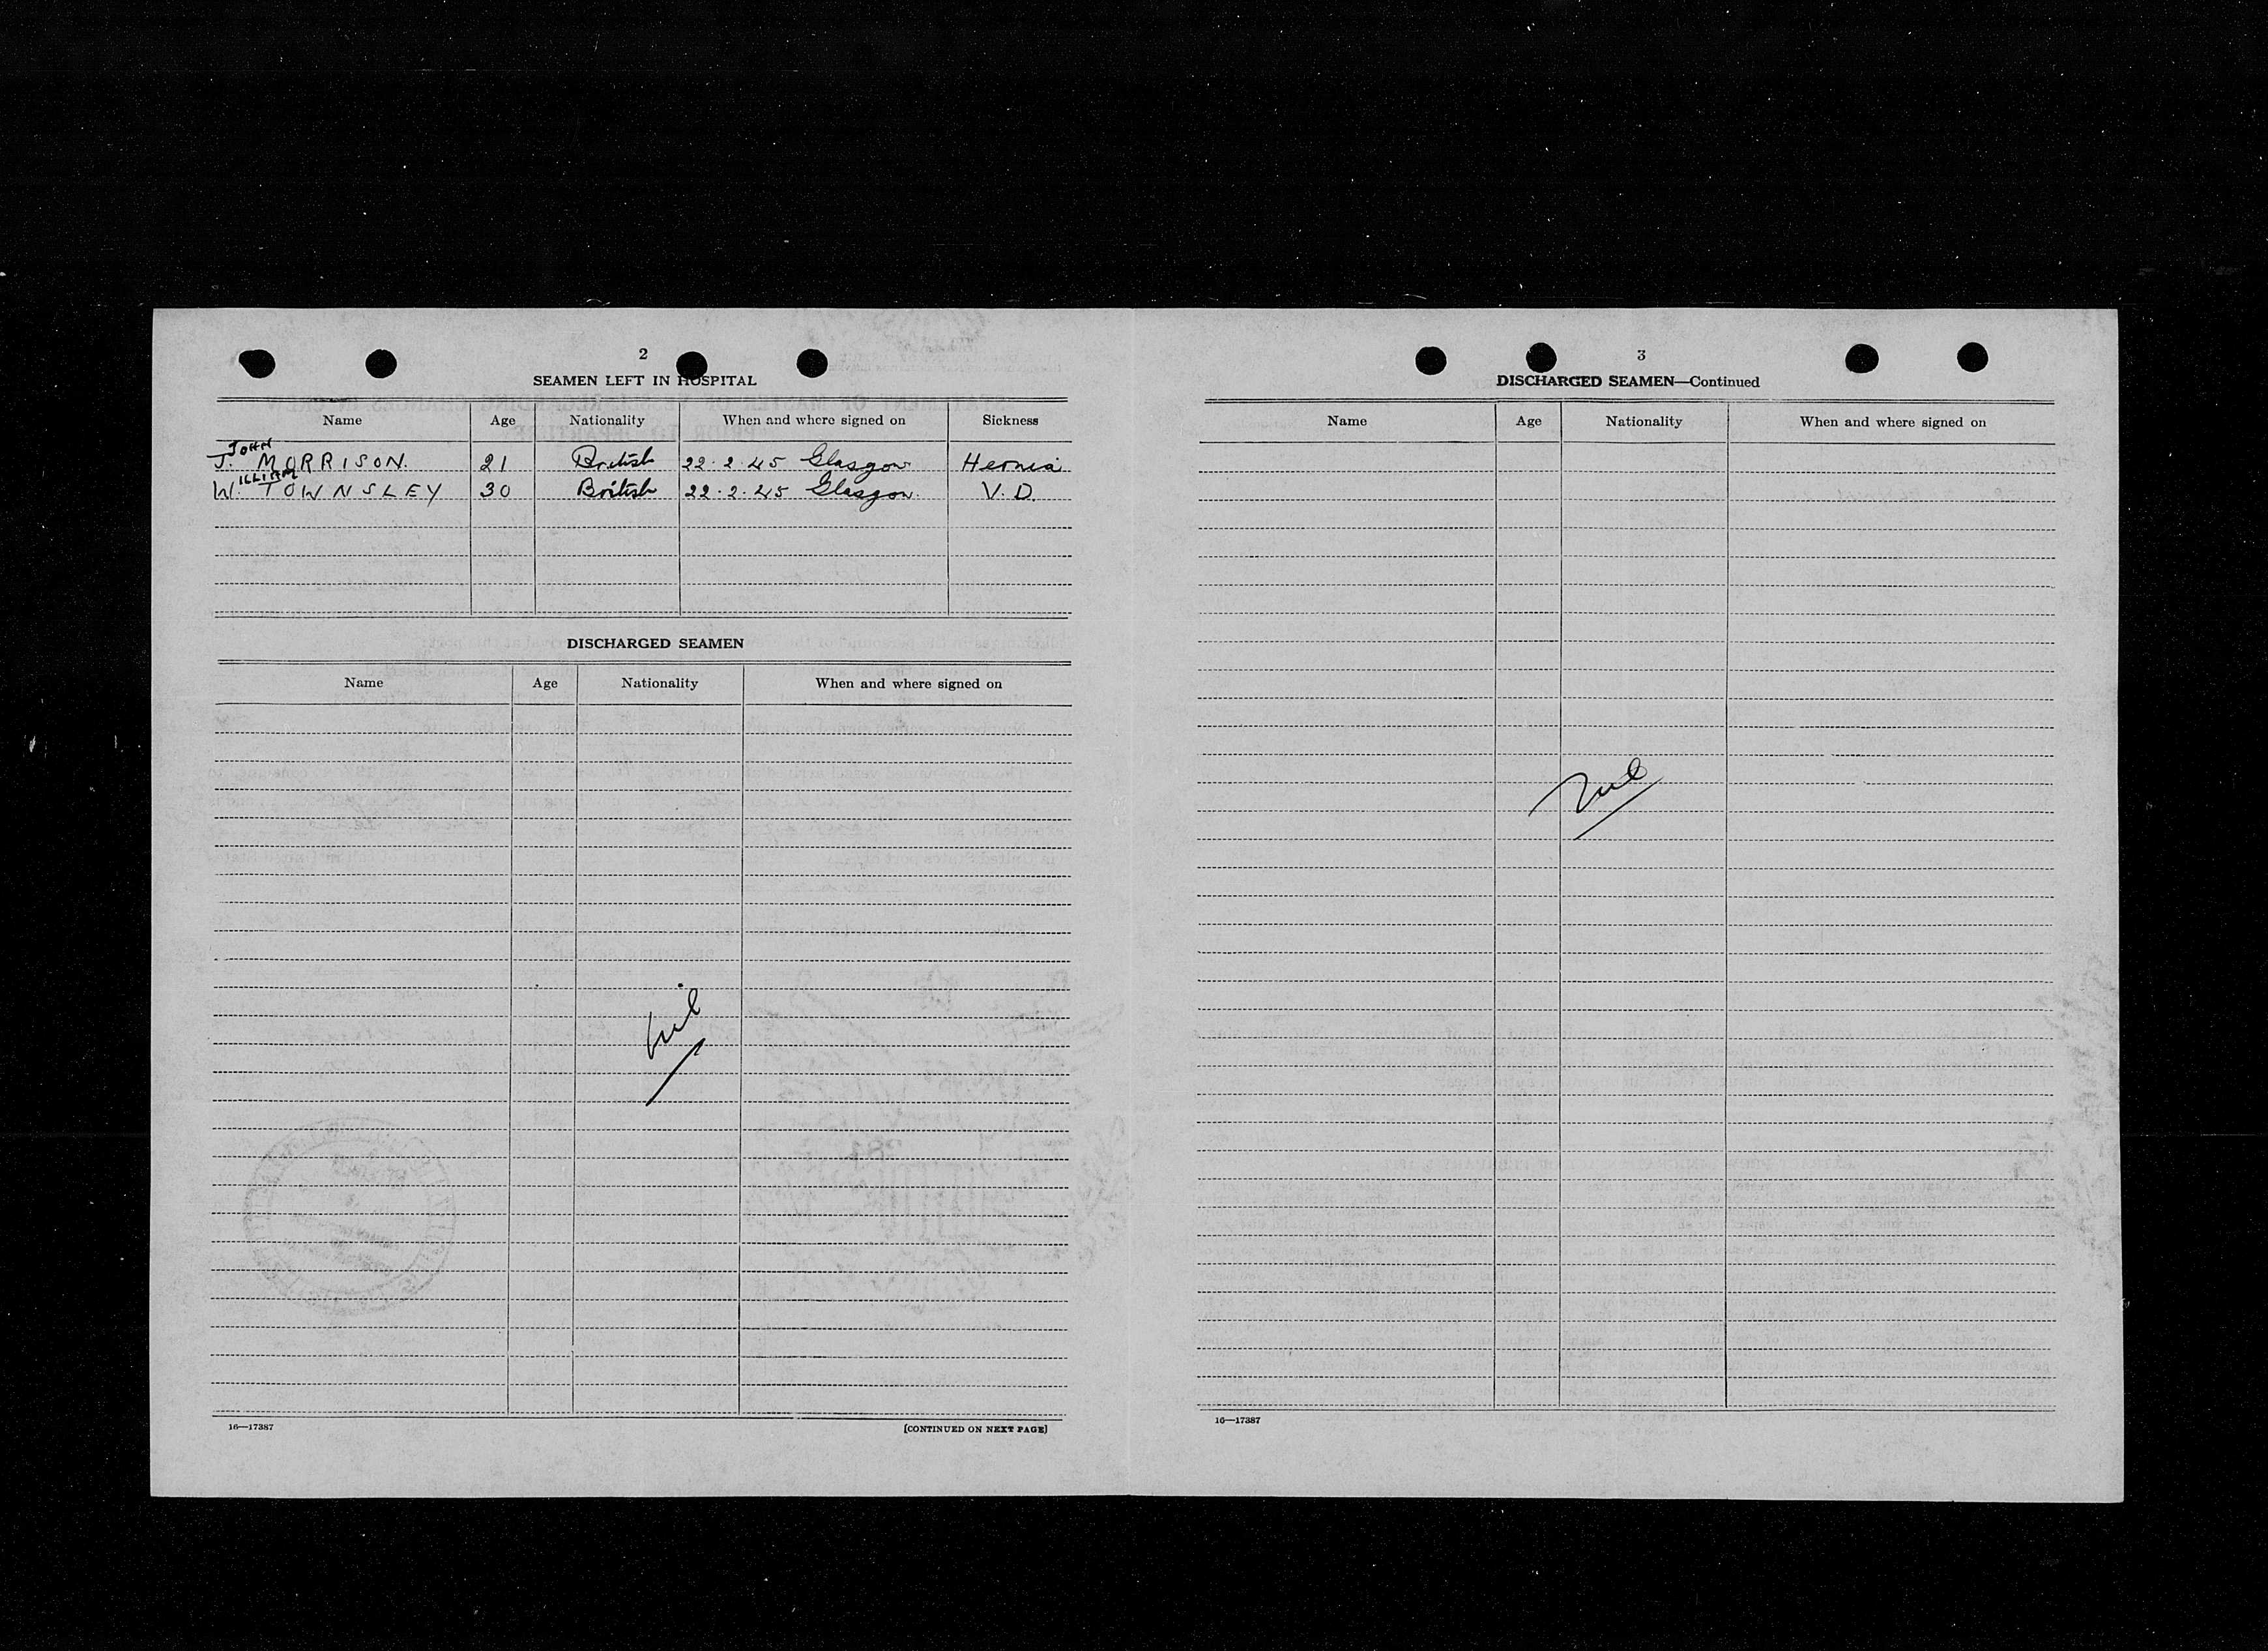 2
SEAMEN LEFT IN HOSPITAL
Name Age Nationality When and where signed on Sickness
JOHN
J. MORRISON. 21 British 22.2.45 Glasgow Hernia
ILLIAM
W. TOWNSLEY 30 British 22.2.45 Glasgow. V.D.
DISCHARGED SEAMEN
Name Age Nationality When and where signed on
nil
16—17387 [CONTINUED ON NEXT PAGE]
3
DISCHARGED SEAMEN—Continued
Name Age Nationality When and where signed on
Nil
16—17387